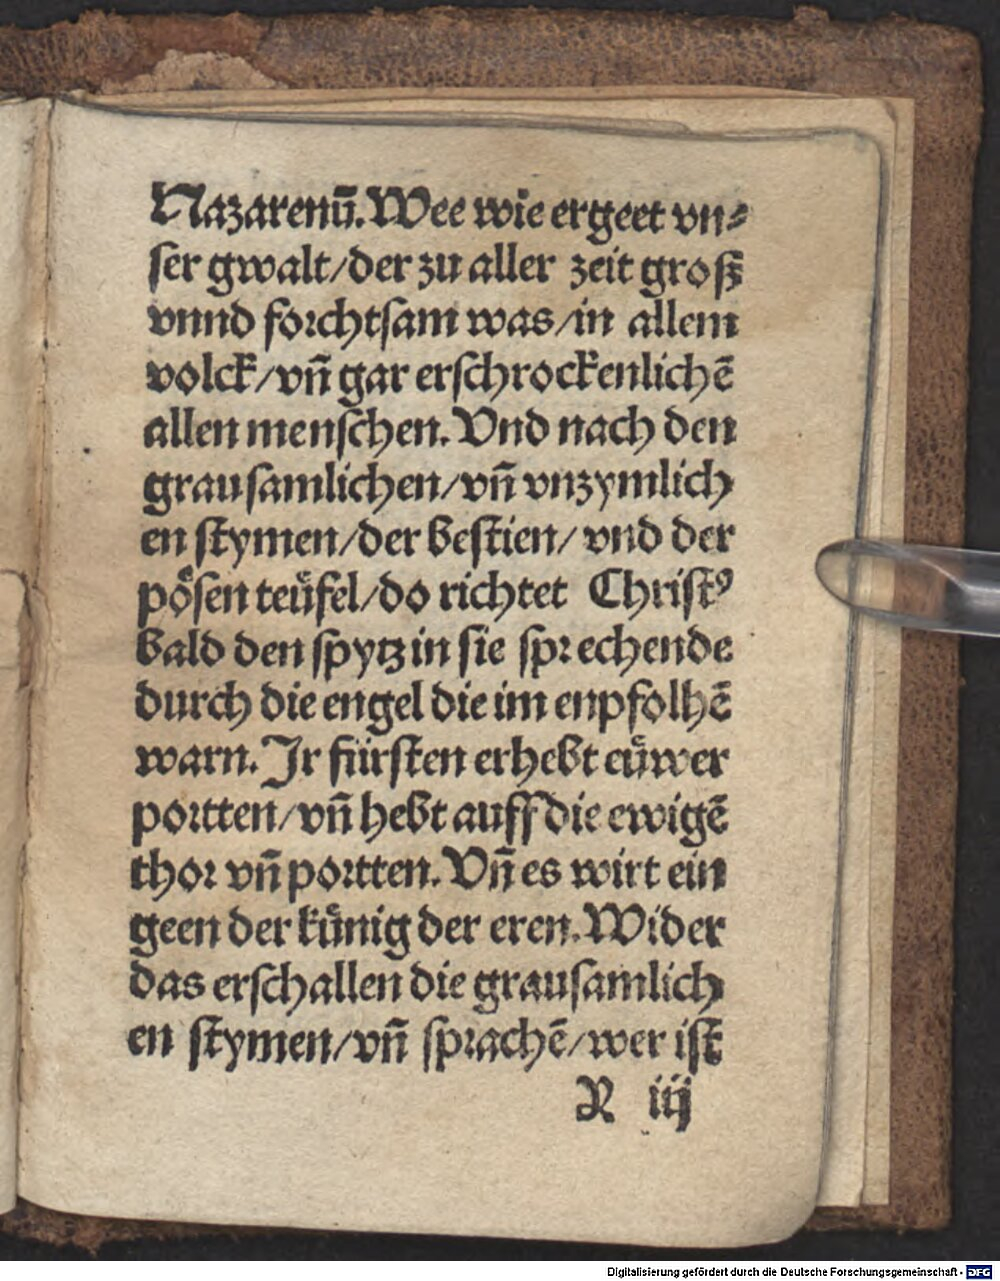 Nazarenū. Wee wie ergeet vn⸗
ser gwalt/der zu aller zeit groß
vnnd forchtsam was/in allem
volck/vn̄ gar erschrockenlichē
allen menschen. Vnd nach den
grausamlichen/vn̄ vnzymlich
en stymen/der bestien/ vnd der
poͤsen teüfel/do richtet Christꝰ
bald den spytz in sie sprechende
durch die engel die im enpfolhē
warn. Jr fürsten erhebt eüwer
portten/vn̄ hebt auff die ewigē
thor vn̄ portten. Vn̄ es wirt ein
geen der künig der eren. Wider
das erschallen die grausamlich
en stymen/vn̄ sprachē/wer ist
R iij
Digitalisierung gefördert durch die Deutsche Forschungsgemeinschaft - DFG